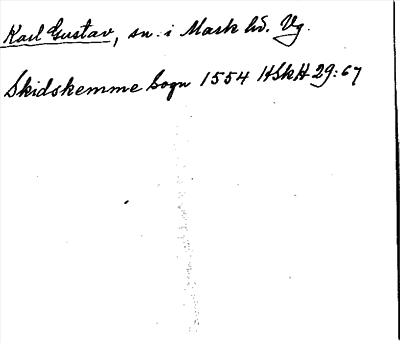 Karl Gustav, sn. i Mark hd. Vg.
Skidskemme Sogn 1554 HSkH 29:67